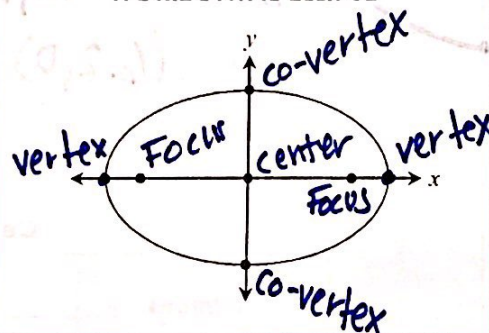 y
co-vertex
vertex
Focus
center
vertex
x
Focus
co-vertex